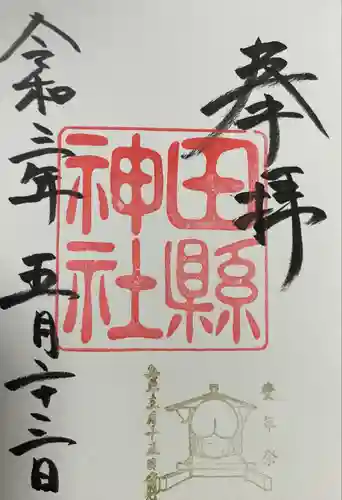 奉拝
田縣
神社
令和三年 五月二十三日
豊年祭